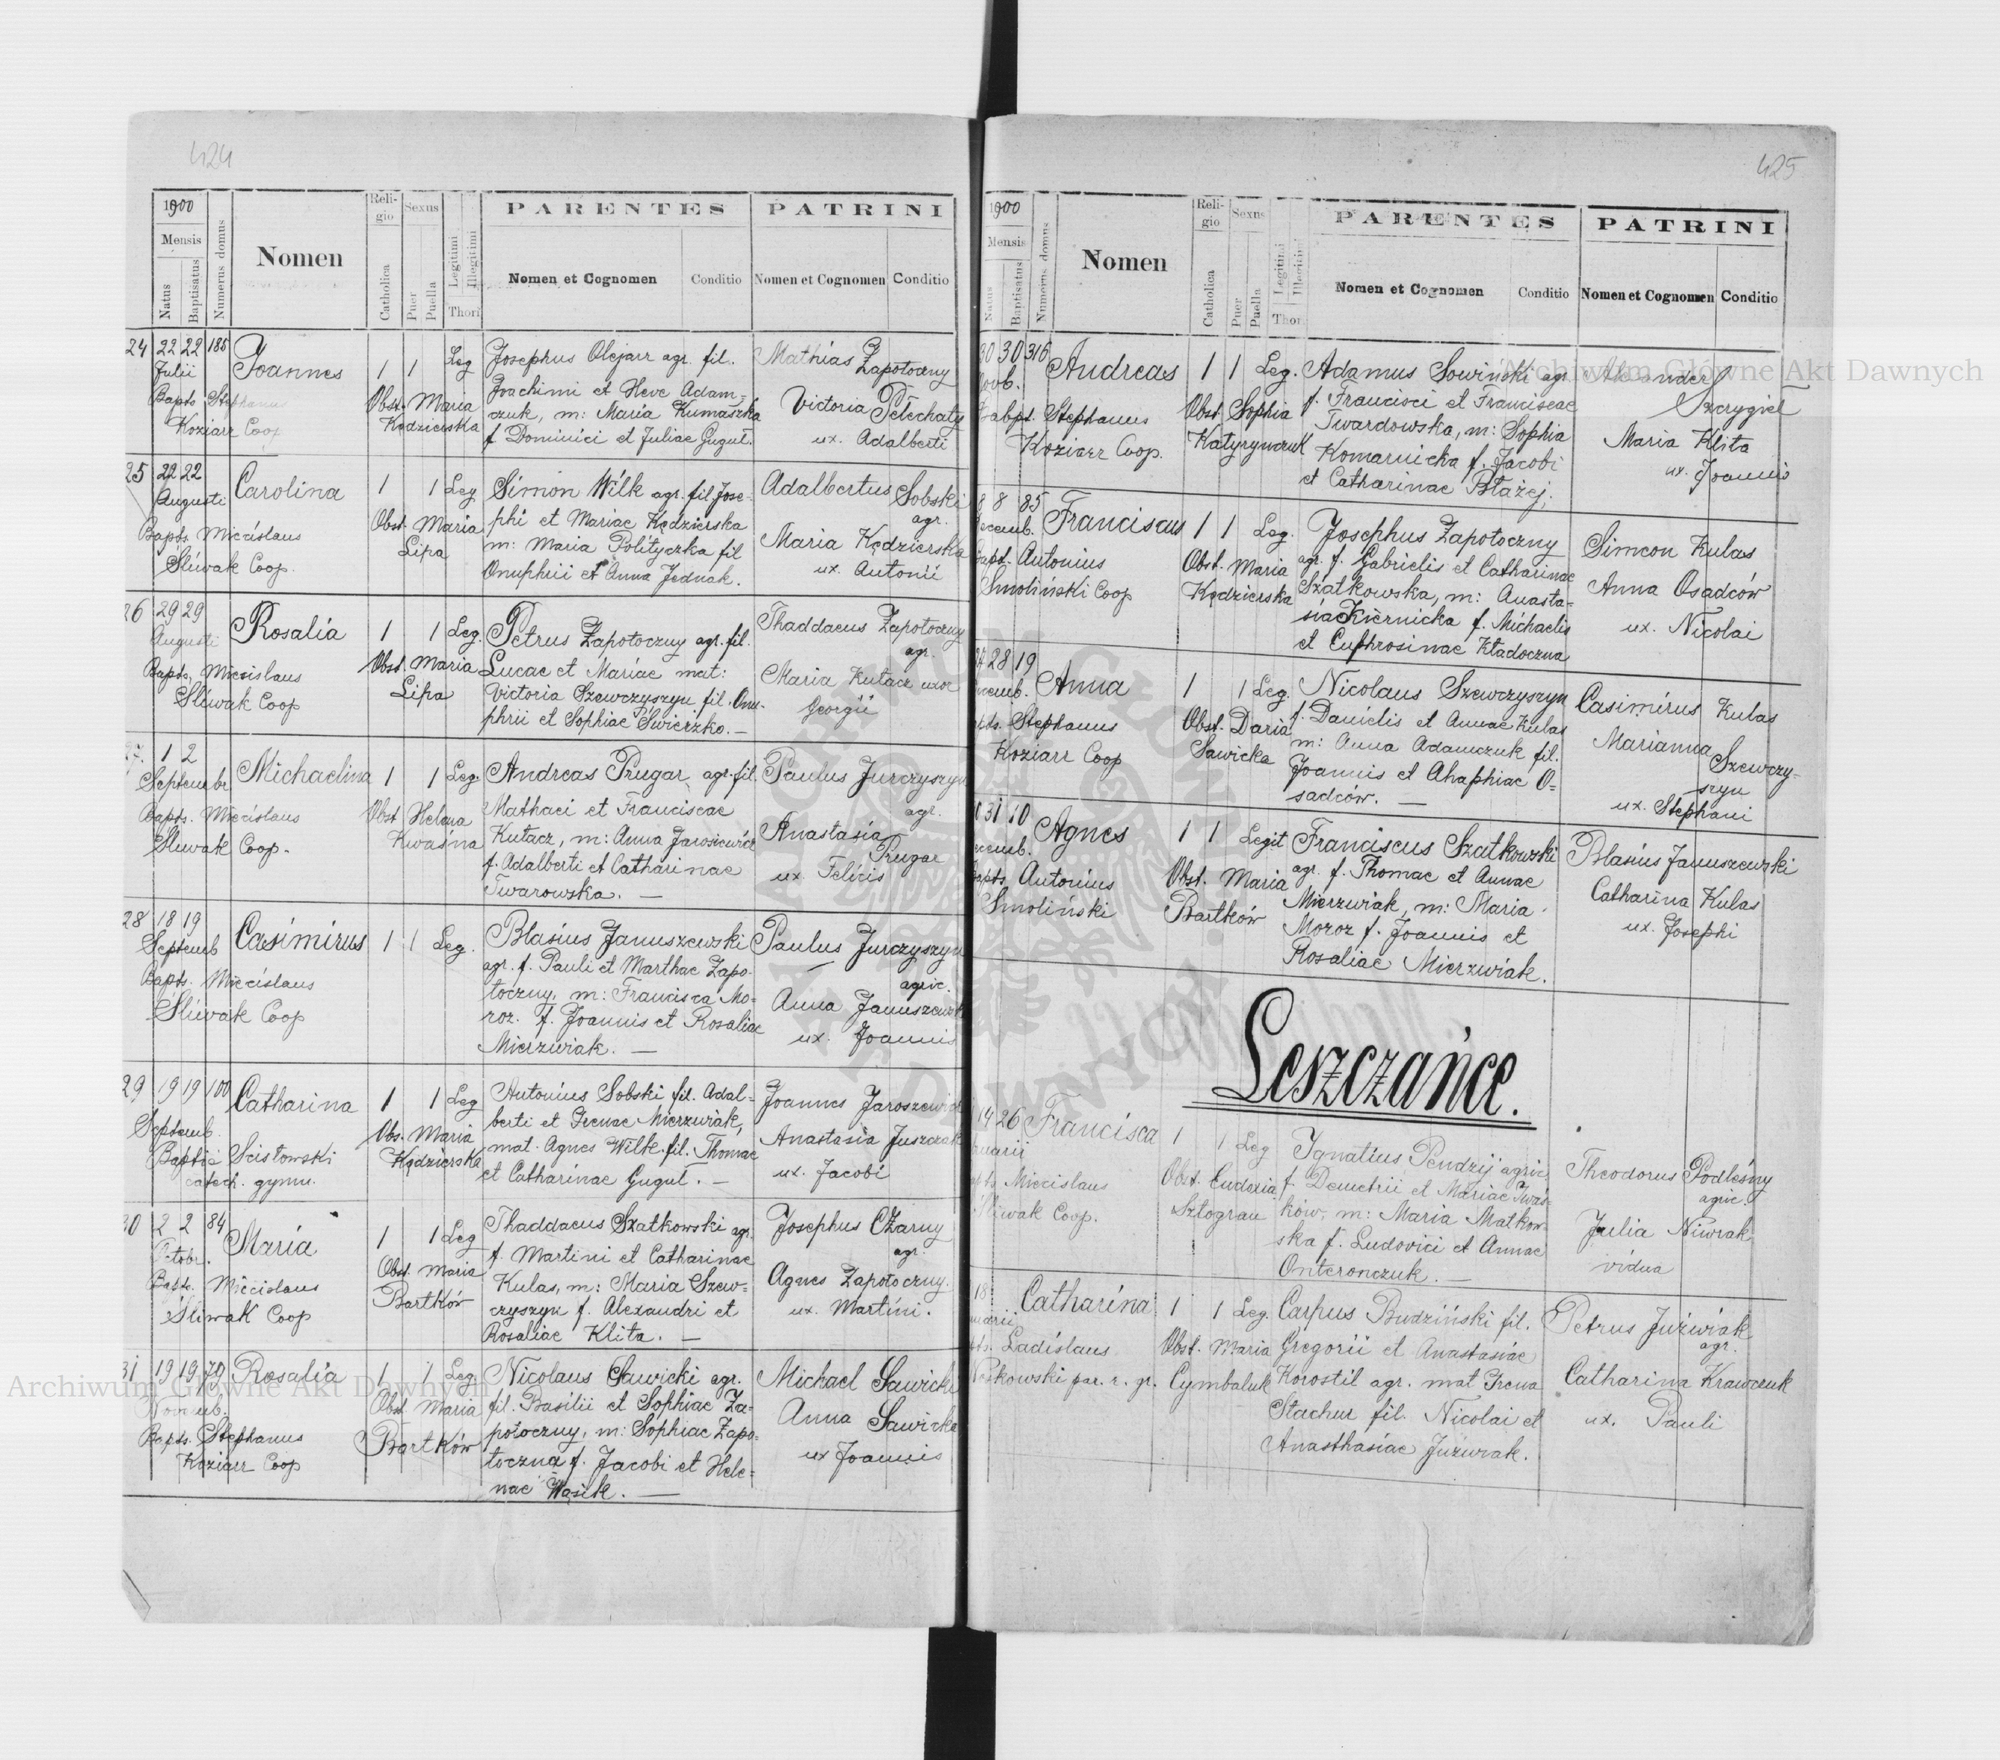 424
1900
Mensis
Natus
Baptisatus
Numerus domus
Nomen
Religio
Catholica
Sexus
Puer
Puella
Legitimi
Illegitimi
Thori
PARENTES
Nomen et Cognomen
Conditio
PATRINI
Nomen et Cognomen
Conditio
24 22 22 185 Joannes 1 1 Leg
Julii
Bapts. Stephanus
Koziarr Coop
Obst. Maria
Kędzierska
Josephus Olejarr agr. fil.
Joachimi et Heve Adam-
czuk, m: Maria Kumaszka
f. Dominici et Juliae Guguł.
Mathias Zapotoczny
Victoria Pełechaty
ux. Adalberti
25 22 22 Carolina 1 1 Leg
Augusti
Bapts. Miecislaus
Śliwak Coop.
Obst. Maria
Lipa
Simon Wilk agr. fil. Jose-
phi et Mariae Kędzierska
m: Maria Polityczka fil
Onuphrii et Anna Jednak.
Adalbertus Sobski
agr.
Maria Kędzierska
ux. Antonii
26 29 29 Rosalia 1 1 Leg.
Augusti
Bapts. Miecislaus
Śliwak Coop
Obst. Maria
Lipa
Petrus Zapotoczny agr. fil.
Lucae et Mariae mat:
Victoria Szewczyszyn fil. Onu-
phrii et Sophiae Świerzko. —
Thaddaeus Zapotoczny
agr.
Maria Kutacz uxor
Georgii
27. 1 2 Michaelina 1 1 Leg.
Septembr
Bapts. Miecislaus
Śliwak Coop.
Obst Helena
Kwaśna
Andreas Prugar agr. fil.
Mathaei et Franciscae
Kutacz, m: Anna Jarosiewicz
f. Adalberti et Catharinae
Twarowska. —
Paulus Jurczyszyn
agr.
Anastasia
Prugar
ux. Felicis
28 18 19 Casimirus 1 1 Leg.
Septemb
Bapts. Miecislaus
Śliwak Coop
Blasius Januszewski
agr. f. Pauli et Marthae Zapo-
toczny, m: Francisca Mo-
roz. f. Joannis et Rosaliae
Mierzwiak. —
Paulus Jurczyszyn
agric.
Anna Januszewsk
ux. Joannis
29 19 19 100 Catharina 1 1 Leg
Septemb.
Baptic Scisłowski
catech. gymn.
Obs. Maria
Kędzierska
Antonius Sobski fil. Adal-
berti et Irenae Mierzwiak,
mat. Agnes Wilk. fil. Thomae
et Catharinae Guguł. —
Joannes Jaroszewicz
Anastasia Juszczak
ux. Jacobi
30 2 2 84 Maria 1 1 Leg
Octob.
Bapt. Miecislaus
Śliwak Coop
Obst. Maria
Bartków
Thaddaeus Szatkowski agr.
f. Martini et Catharinae
Kulas, m: Maria Szew-
czyszyn f. Alexandri et
Rosaliae Klita. —
Josephus Czarny
agr.
Agnes Zapotoczny.
ux. Martini.
31 19 19 79 Rosalia 1 1 Leg.
Novemb.
Bapts. Stephanus
Koziarr Coop
Obst Maria
Bartków
Nicolaus Sawicki agr.
fil. Basilii et Sophiae Za-
potoczny, m: Sophiae Zapo-
toczna f. Jacobi et Hele-
nae Wasik. —
Michael Sawicki
Anna Sawicka
ux Joannis
425
1900
Mensis
Natus
Baptisatus
Numerus domus
Nomen
Religio
Catholica
Sexus
Puer
Puella
Legitimi
Illegitimi
Thori
PARENTES
Nomen et Cognomen
Conditio
PATRINI
Nomen et Cognomen
Conditio
30 30 316 Andreas 1 1 Leg.
Novb.
bapt. Stephanus
Koziarr Coop.
Obst. Sophia
Katyrynczuk
Adamus Sowiński agr.
f. Francisci et Franciscae
Twardowska, m: Sophia
Komarnicka f. Jacobi
et Catharinae Błażej.
Alexander
Szczygieł
Maria Klita
ux. Joannis
8 8 85 Franciscus 1 1 Leg.
Decemb.
Bapt. Antonius
Smoliński Coop
Obst. Maria
Kędzierska
Josephus Zapotoczny
agr. f. Gabrielis et Catharinae
Szatkowska, m: Anasta-
sia Kiernicka f. Michaelis
et Euphrosinae Kładoczna
Simeon Kulas
Anna Osadców
ux. Nicolai
27 28 19 Anna 1 1 Leg.
Decemb.
Bapts. Stephanus
Koziarr Coop
Obst. Daria
Sawicka
Nicolaus Szewczyszyn
f. Danielis et Annae Kulas
m: Anna Adamczuk fil.
Joannis et Ahaphiae O-
sadców. —
Casimirus Kulas
Marianna
Szewczy-
szyn
ux. Stephani
31 10 Agnes 1 1 Legit
Decemb.
Bapts Antonius
Smoliński
Obst. Maria
Bartków
Franciscus Szatkowski
agr. f. Thomae et Annae
Mierzwiak, m: Maria
Moroz f. Joannis et
Rosaliae Mierzwiak.
Blasius Januszewski
Catharina Kulas
ux. Josephi
Leszczańce.
14 26 Francisca 1 1 Leg
Miecislaus
Śliwak Coop.
Obst. Eudoxia
Sztogran
Ignatius Pendzij agric
f. Demetrii et Mariae Iwaś-
ków, m: Maria Matkow-
ska f. Ludovici et Annae
Onteronczuk. —
Theodorus Podleśny
agric.
Julia Niwrak
vidua
18 Catharina 1 1 Leg.
Ladislaus
par. r. gr.
Obst. Maria
Cymbaluk
Carpus Budziński fil.
Gregorii et Anastasiae
Korostil agr. mat Irena
Stachur fil. Nicolai et
Anasthasiae Juzwiak.
Petrus Juźwiak
agr.
Catharina Krawczuk
ux. Pauli
Archiwum Główne Akt Dawnych
Archiwum Główne Akt Dawnych
ARCHIWUM GŁÓWNE AKT DAWNYCH